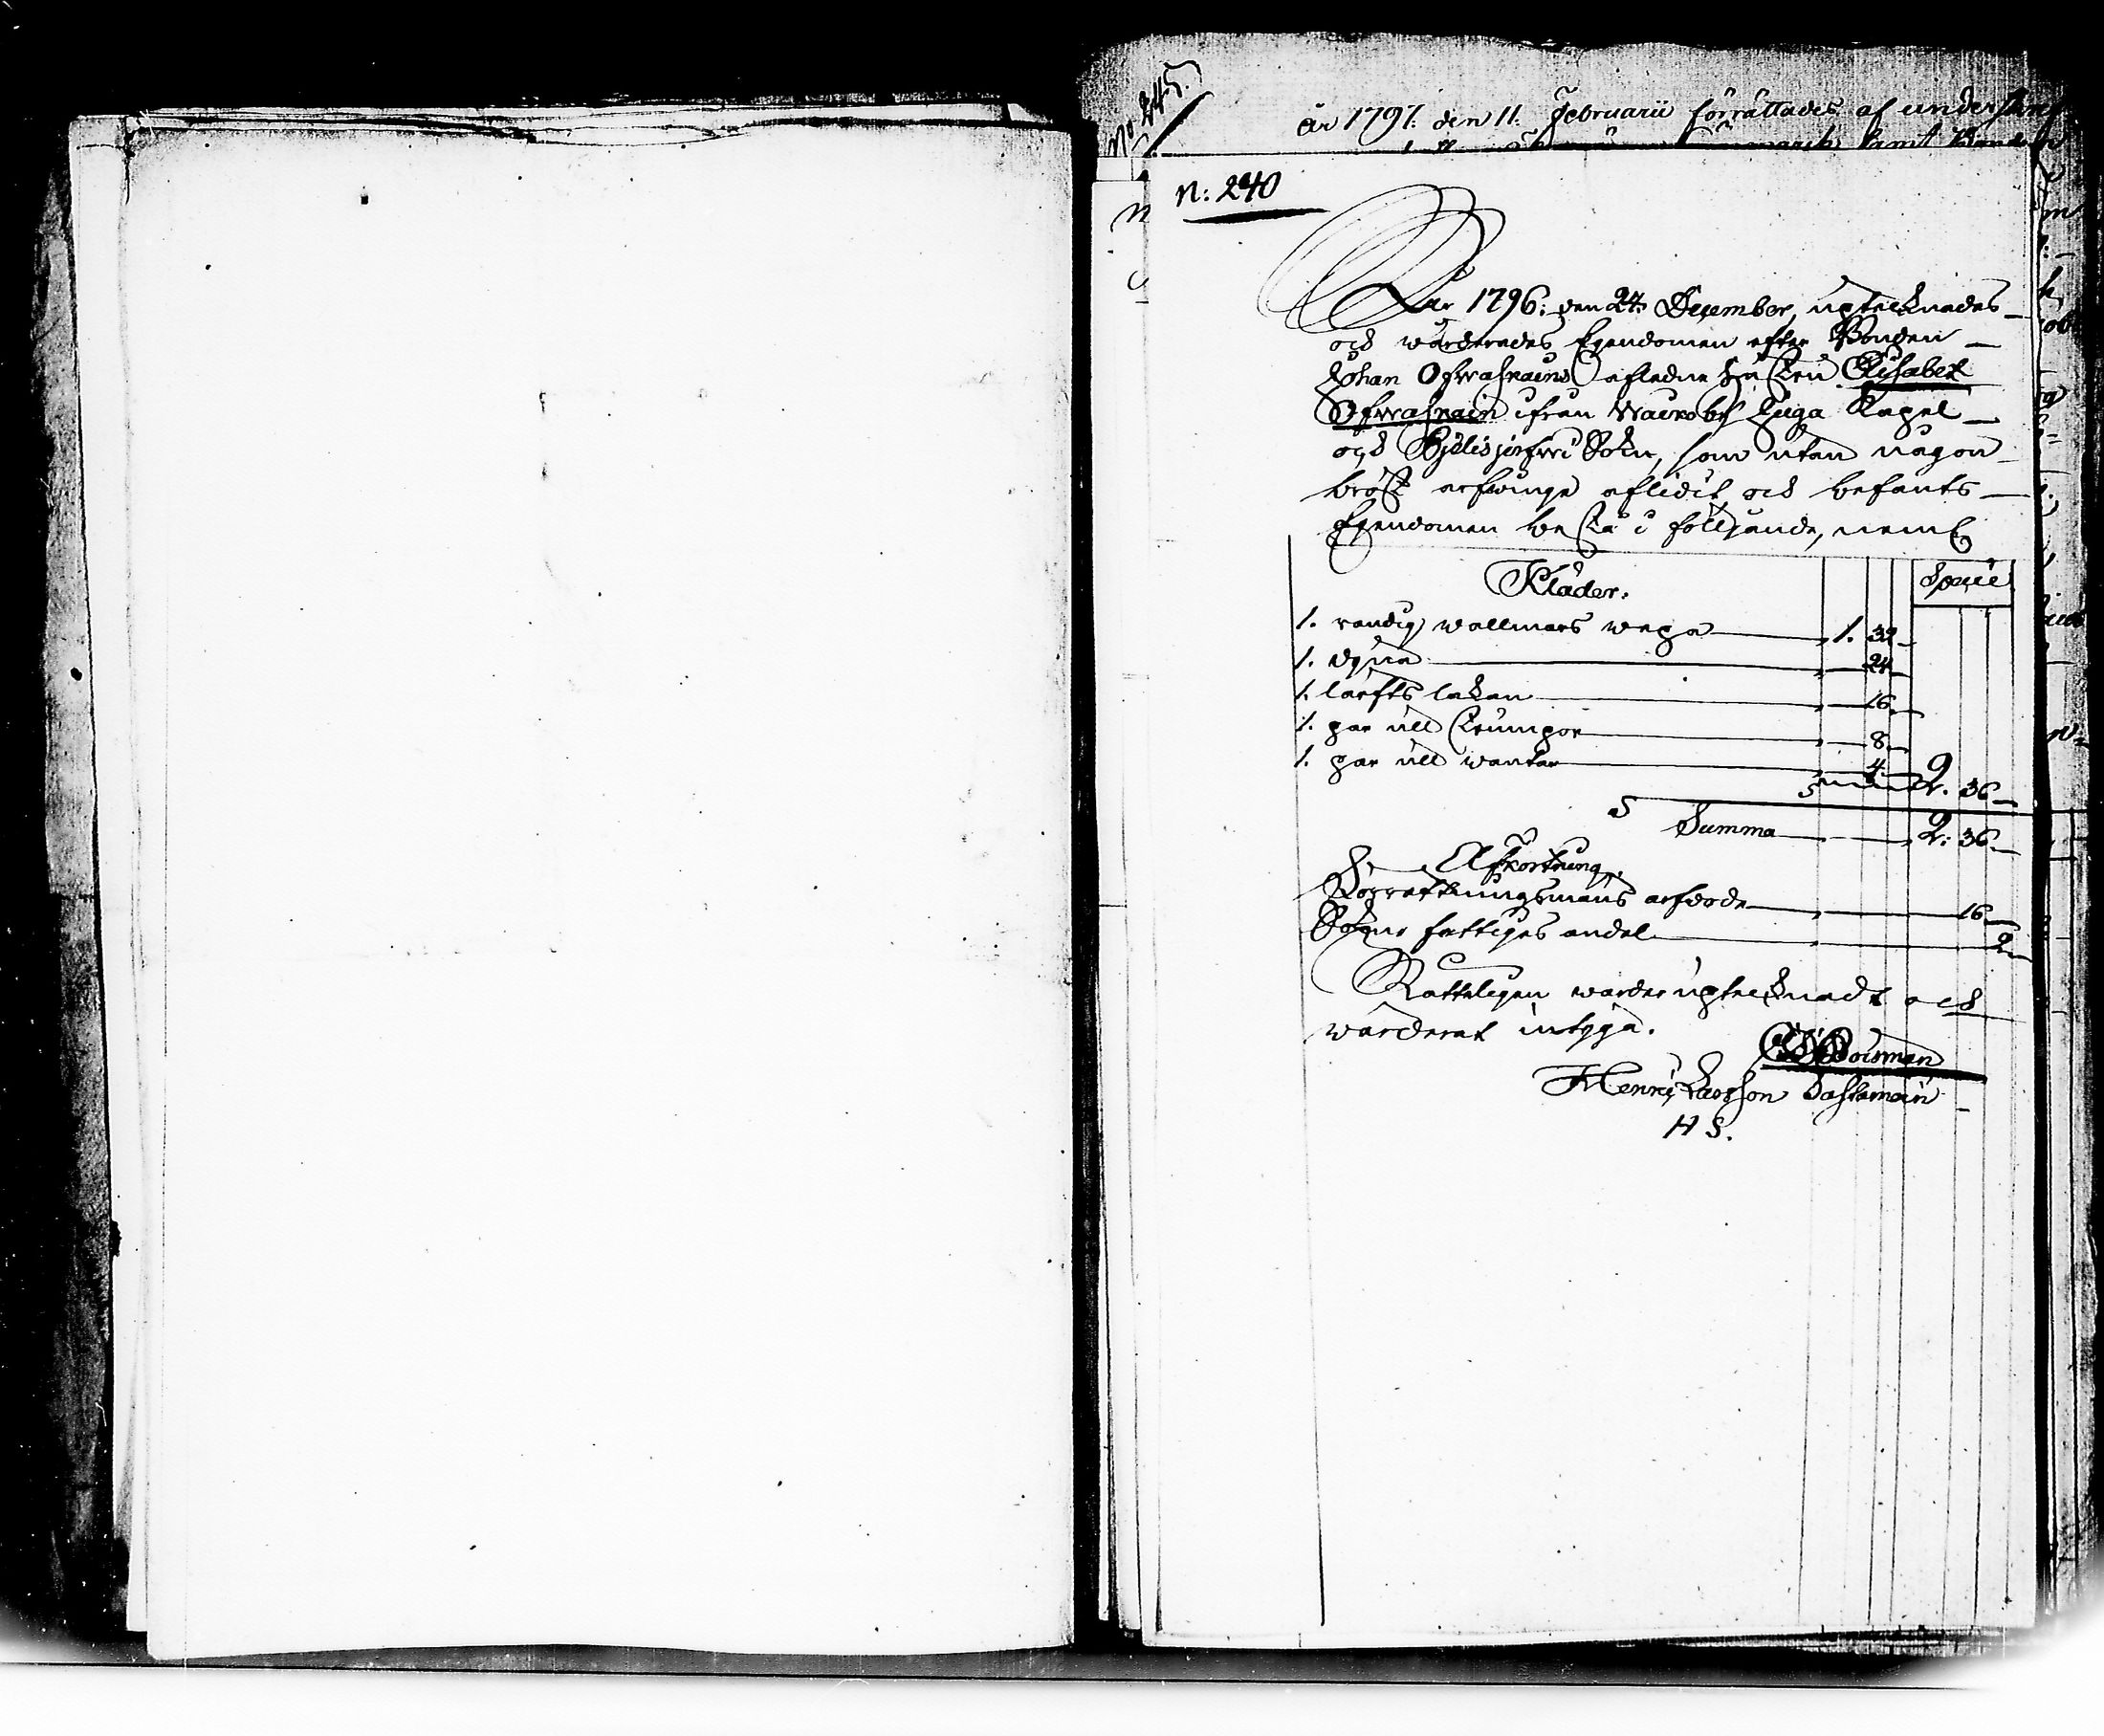 No 245.
år 1797. den 11. Februarii förrättades af
samt
N: 240
Åhr 1796: den 24: December, uptecknades
och wärderades Egendomen efter Bonden
Johan Ofwaskains afledne hustru Elisabet
Ofwaskain ifrån Kapel
och Sokn, som utan någon
bröst arfwinge aflidit och befants
Egendomen bestå i följande, neml
Kläder. Specie
1. randig wallmars wepa 1. 32
1. dyna 24
1. lärfts lakan 16
1. par ull strumpor 8
1. par ull wantar 4 2. 36
Summa 2: 36
Afkortning
Förrettningsmans arfwode 16
Sokne fattiges andel 2
Rätteligen warder uptecknadt och
wärderat intyga.
Henric Larsson
H S.